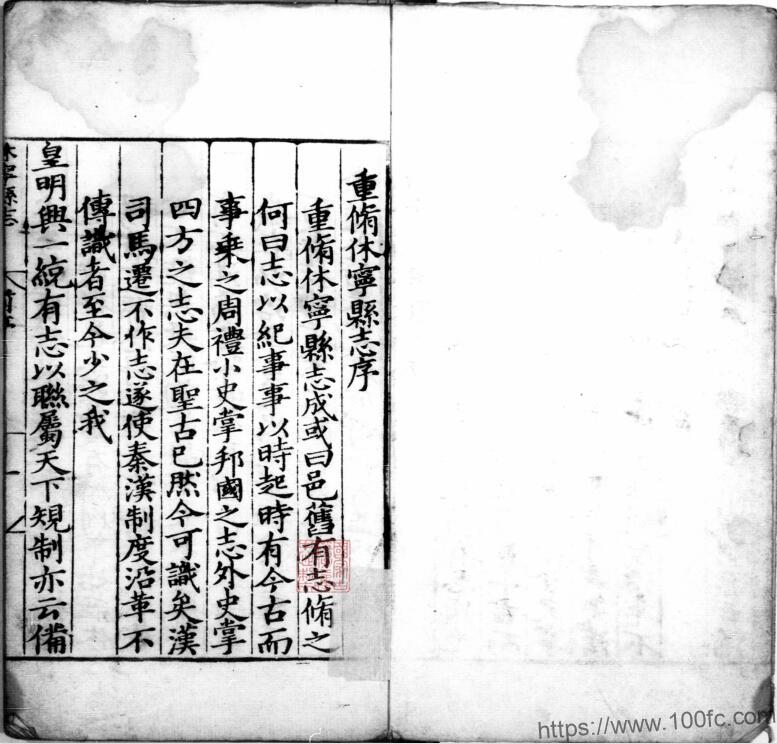 重脩休寧縣志序
重脩休寧縣志成或曰邑舊有志脩之
何曰志以紀事事以時起時有今古而
事乗之周禮小史掌邦國之志外史掌
四方之志夫在聖古已然今可識矣漢
司馬遷不作志遂使秦漢制度沿革不
傳識者至今少之我
皇明興一統有志以聯屬天下規制亦云備
休寧縣志
https://www.100fc.com